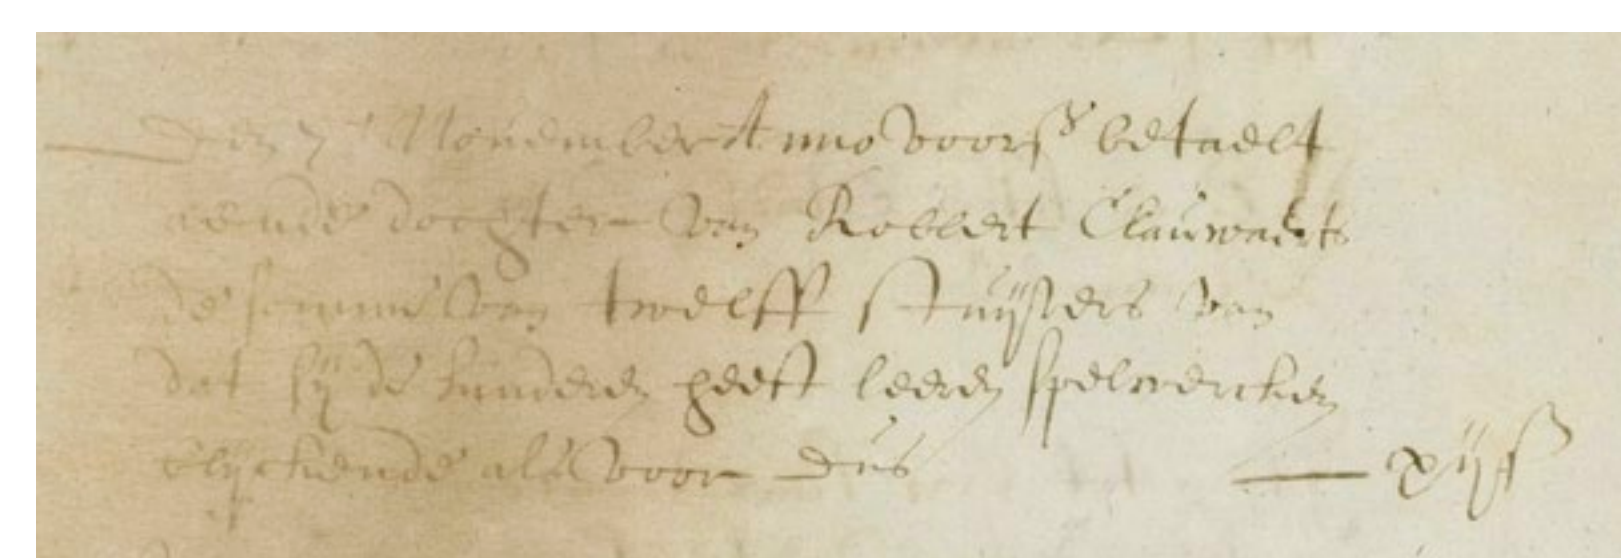 Den 7e November A nno voors betaelt
aende dochter van Robbert Clauwaerts
de somme van twelff stuijvers van
dat sij de kinderen heeft leeren spelwercken
blijckende als voor dus xij s